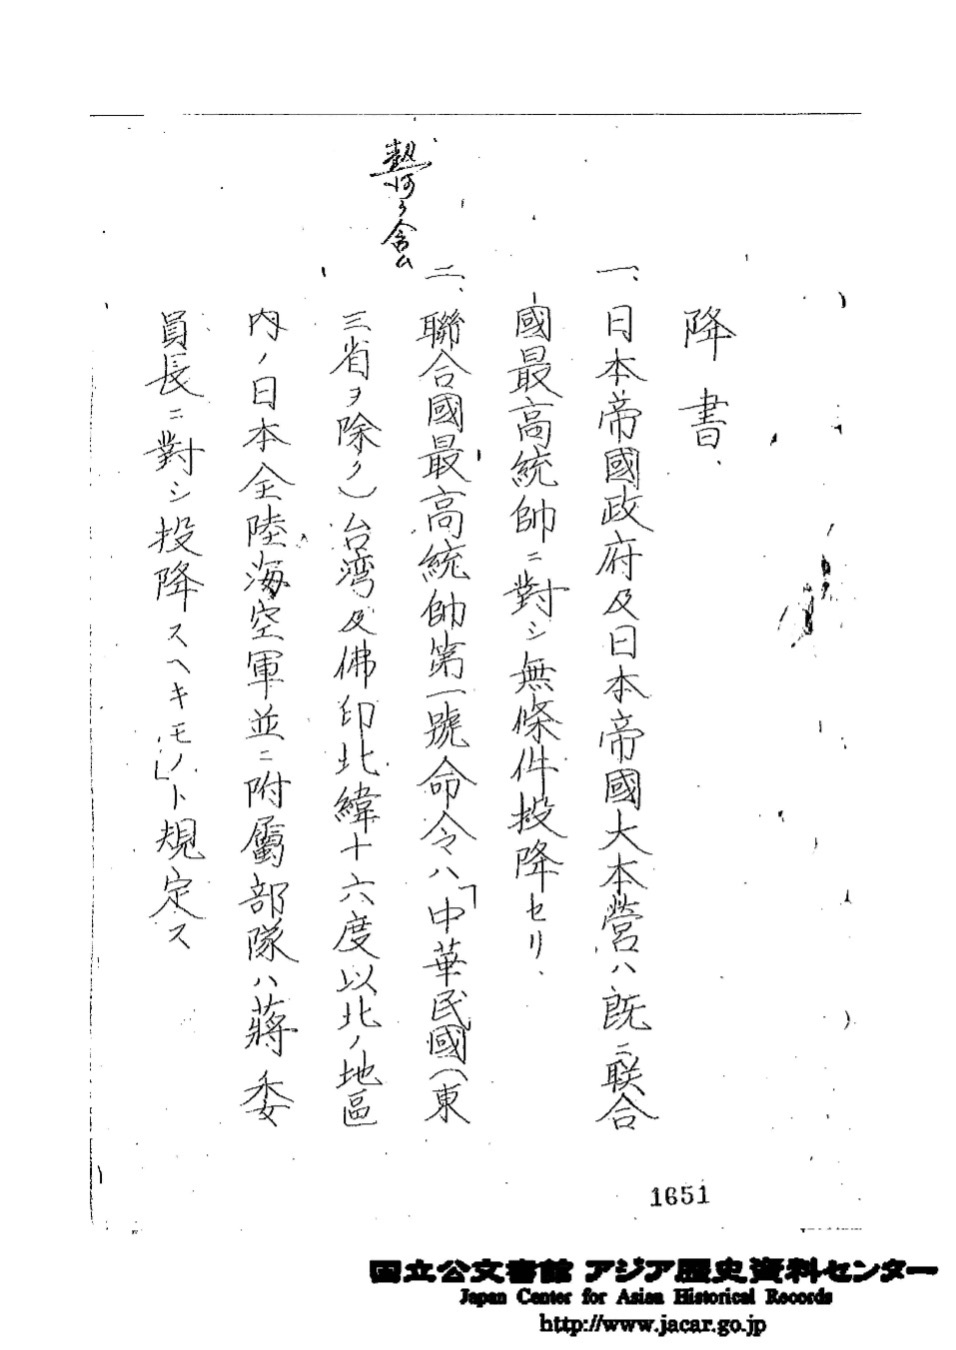 降書、
一、日本帝國政府及日本帝國大本營ハ既ニ联合
國最高統帥ニ對シ無條件投降セリ、
二、聯合國最高統帥第一號命令ハ「中華民國(東
三省ヲ除ク)台湾及佛印北緯十六度以北ノ地區
熱河ヲ含ム
内ノ日本全陸海空軍並ニ附属部隊ハ蔣委
員長ニ對シ投降スヘキモノ」ト規定ス
1651
国立公文書館 アジア歴史資料センター
Japan Center for Asian Historical Records
http://www.jacar.go.jp